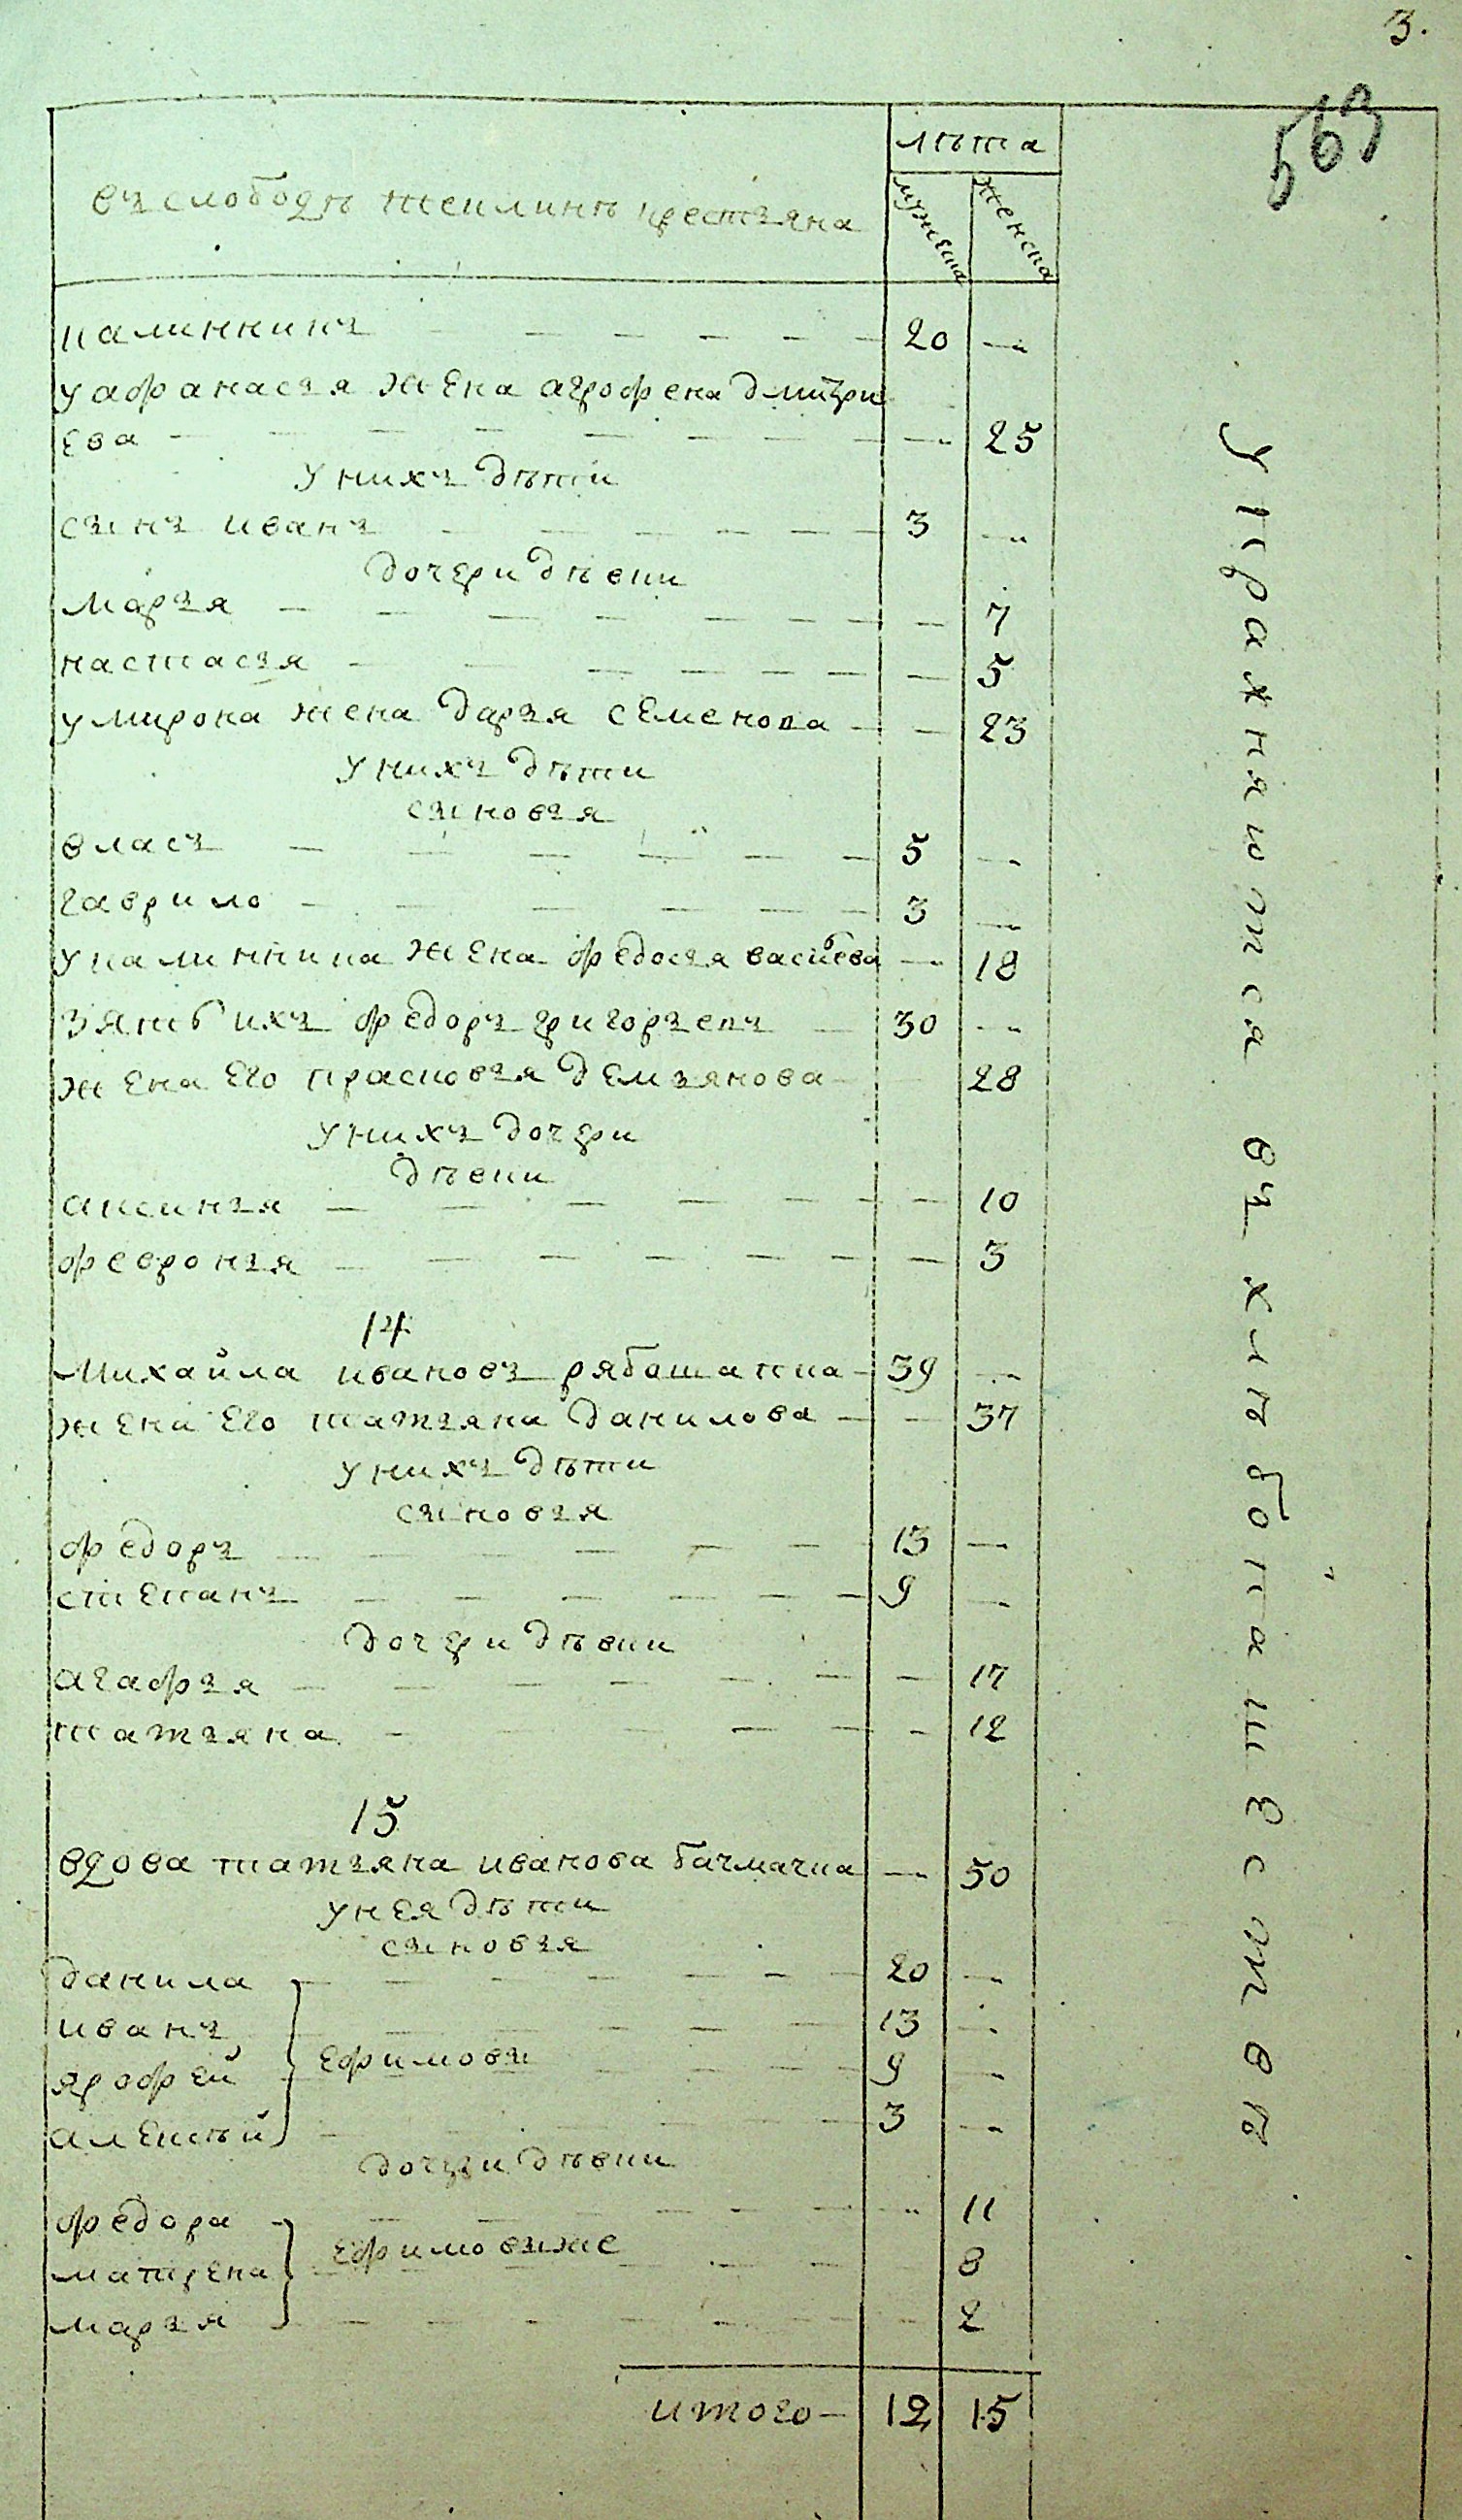 3.
563
въ слободѣ жеплинѣ крестьяна
лѣта
мужеска
женска
калинникъ 20
у афанасья жена агрофена дмитри
ева 25
у нихъ дѣти
сынъ иванъ 3
дочери дѣвки
марья 7
настасья 5
у мирона жена дарья семенова 23
у нихъ дѣти
сыновья
власъ 5
гаврило 3
у калинника жена федосья васильева 18
зять ихъ федоръ григорьевъ 30
жена его прасковья демьянова 28
у нихъ дочери
дѣвки
аксинья 10
февронья 3
14
михайла ивановъ рябошапка 39
жена его татьяна данилова 37
у нихъ дѣти
сыновья
федоръ 13
степанъ 9
дочери дѣвки
агафья 17
татьяна 12
15
вдова татьяна иванова бачмачка 50
у нея дѣти
сыновья
данила 20
иванъ 13
ярофей ефимовы 9
алексѣй 3
дочери дѣвки
федора 11
матрена ефимовыже 8
марья 2
итого 12 15